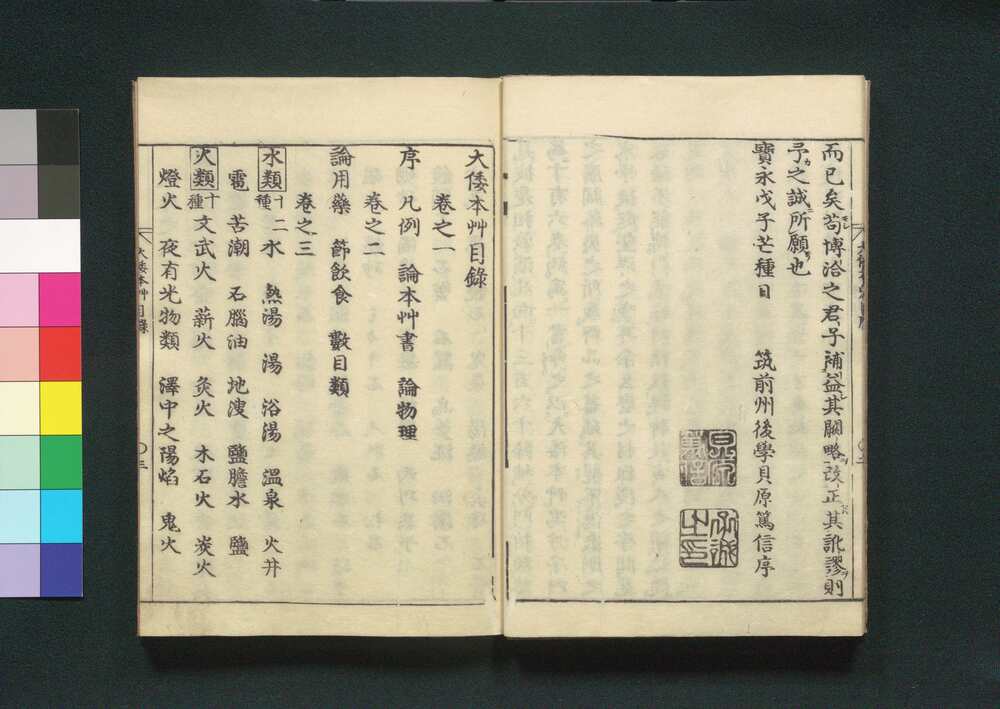 而已矣苟博洽之君子補益其闕略改正其訛謬則
予之誠所願也
寶永戊子芒種日 筑前州後學貝原篤信序
大倭本艸目錄
卷之一
序 凡例 論本艸書 論物理
卷之二
論用藥 節飲食 數目類
卷之三
水類十二種 水 熱湯 湯 浴湯 溫泉 火井
雹 苦潮 石腦油 地溲 鹽膽水 鹽
火類十種 文武火 薪火 灸火 木石火 炭火
燈火 夜有光物類 澤中之陽焰 鬼火
大倭本艸目錄 〇三